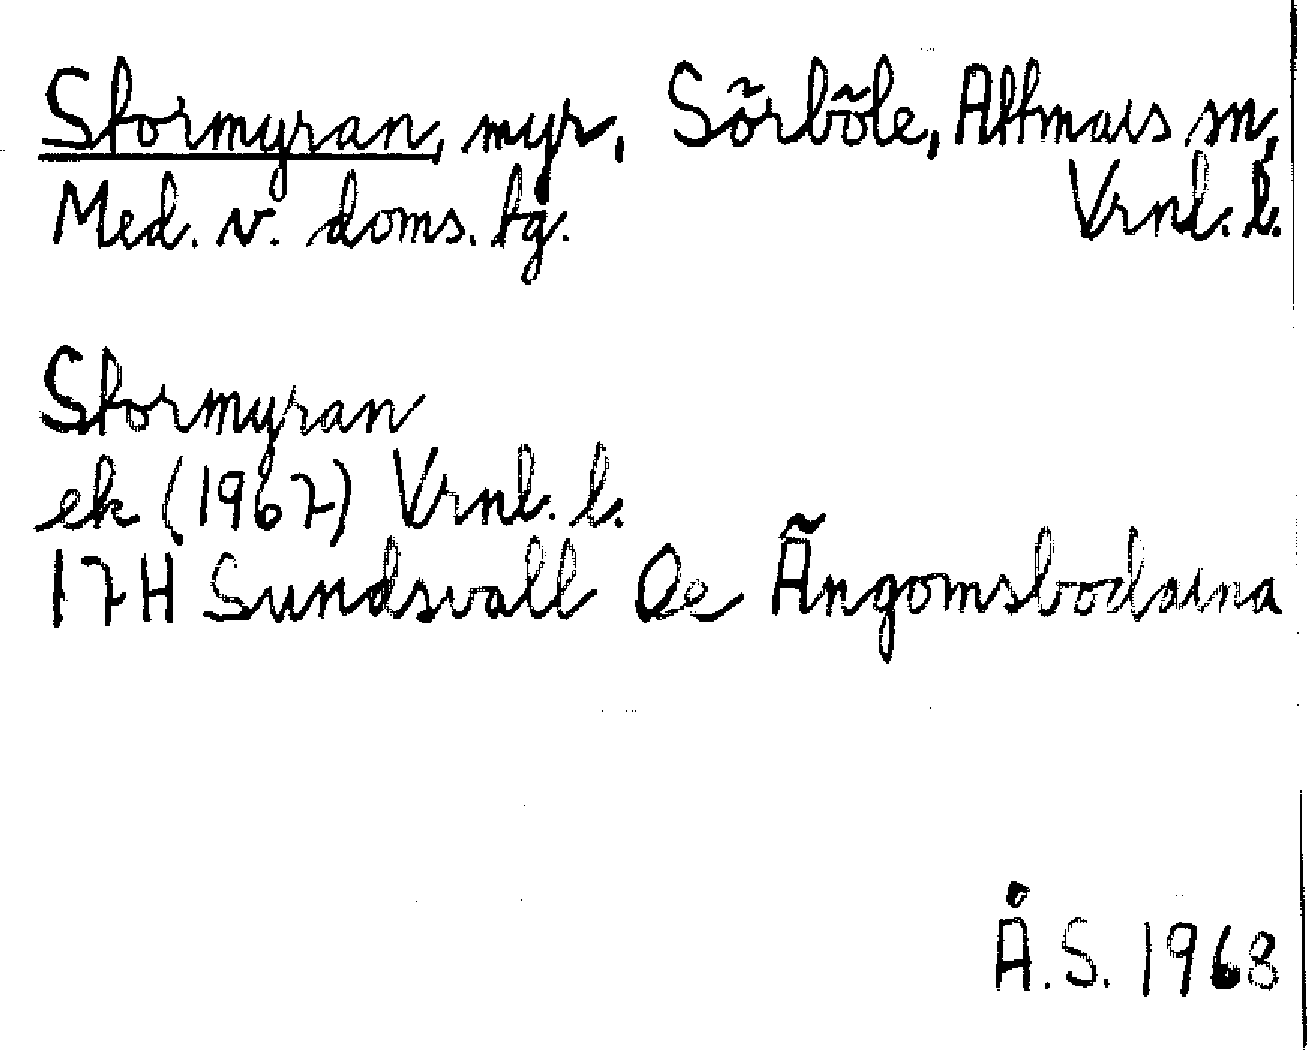 Stormyran, myr, Sörböle, Attmars sn,
Med. v. doms. tg. Vrnl. l.
Stormyran
ek (1967) Vrnl. l.
17H Sundsvall Oe Ängomsbodarna
Å.S. 1968